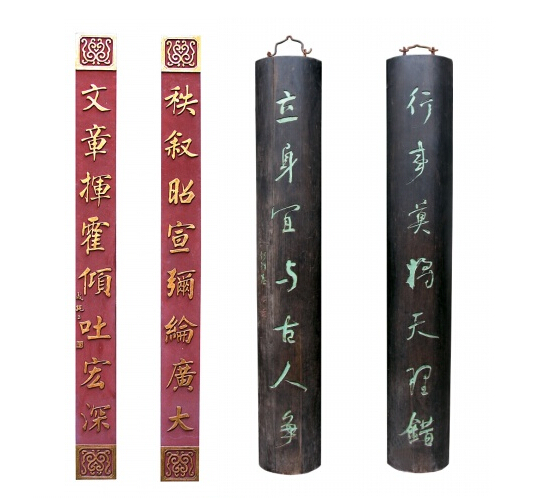 行事莫將天理錯
立身宜与古人争
秩叙昭宣彌綸廣大
文章揮霍傾吐宏深